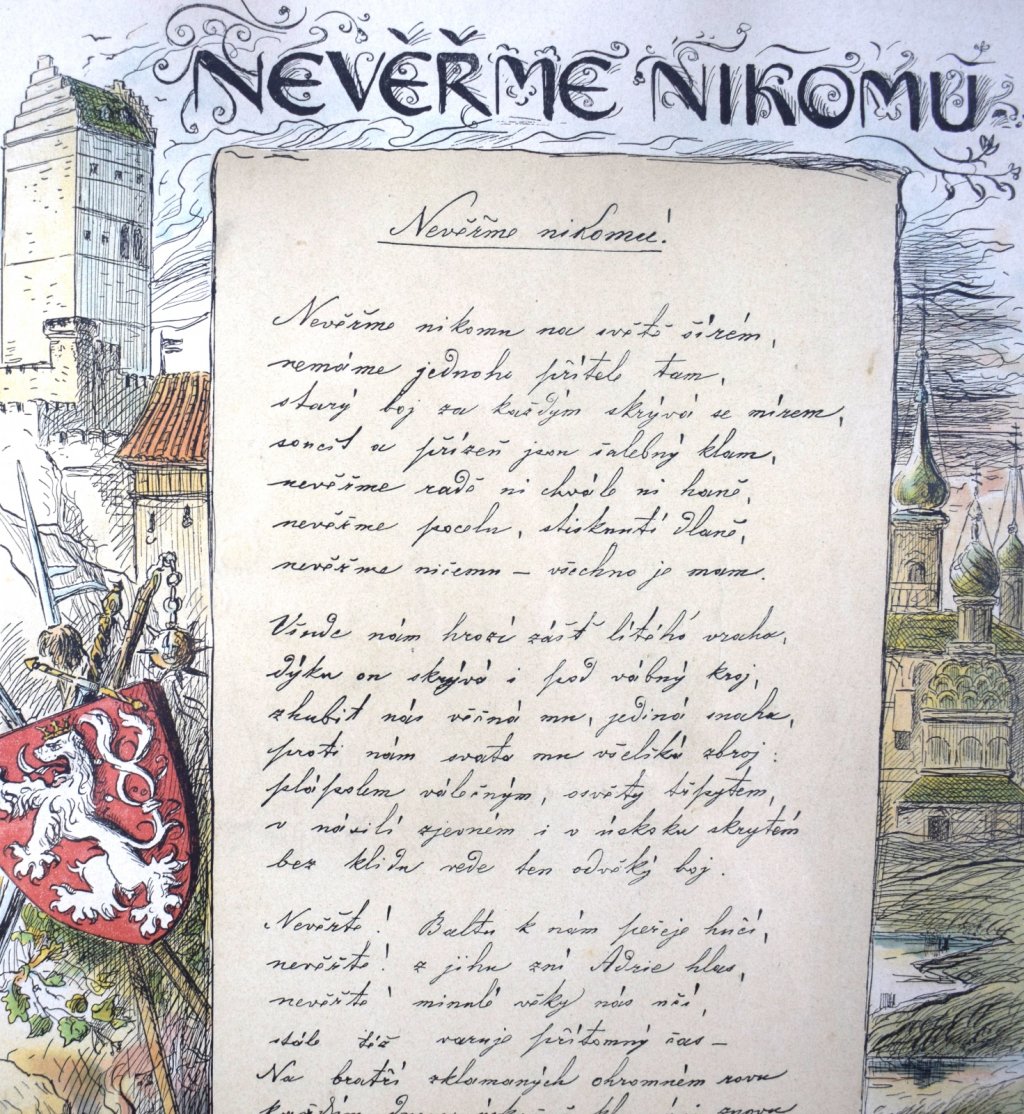 NEVĚŘME NIKOMU
Nevěřme nikomu!
Nevěřme nikomu na světě širém,
nemáme jednoho přítele tam,
starý boj za každým skrývá se mírem,
soucit a přízeň jsou šalebný klam,
nevěřme radě ni chvále ni haně,
nevěřme pocelu, stisknutí dlaně,
nevěřme ničemu – všechno je mam.
Všude nám hrozí zášť lítého vraha,
dýku on skrývá i pod vábný kroj,
zhubit nás věčná mu, jediná snaha,
proti nám svata mu všeliká zbroj:
plápolem válečným, osvěty třpytem,
v násilí zjevném i v úskoku skrytém
bez klidu vede ten odvěký boj.
Nevěřte! Baltu k nám peřeje hučí,
nevěřte! z jihu zní Adrie hlas,
nevěřte! minulé věky nás učí,
stále též varuje přítomný čas –
Na bratří zklamaných ohromném rovu
každým znovu